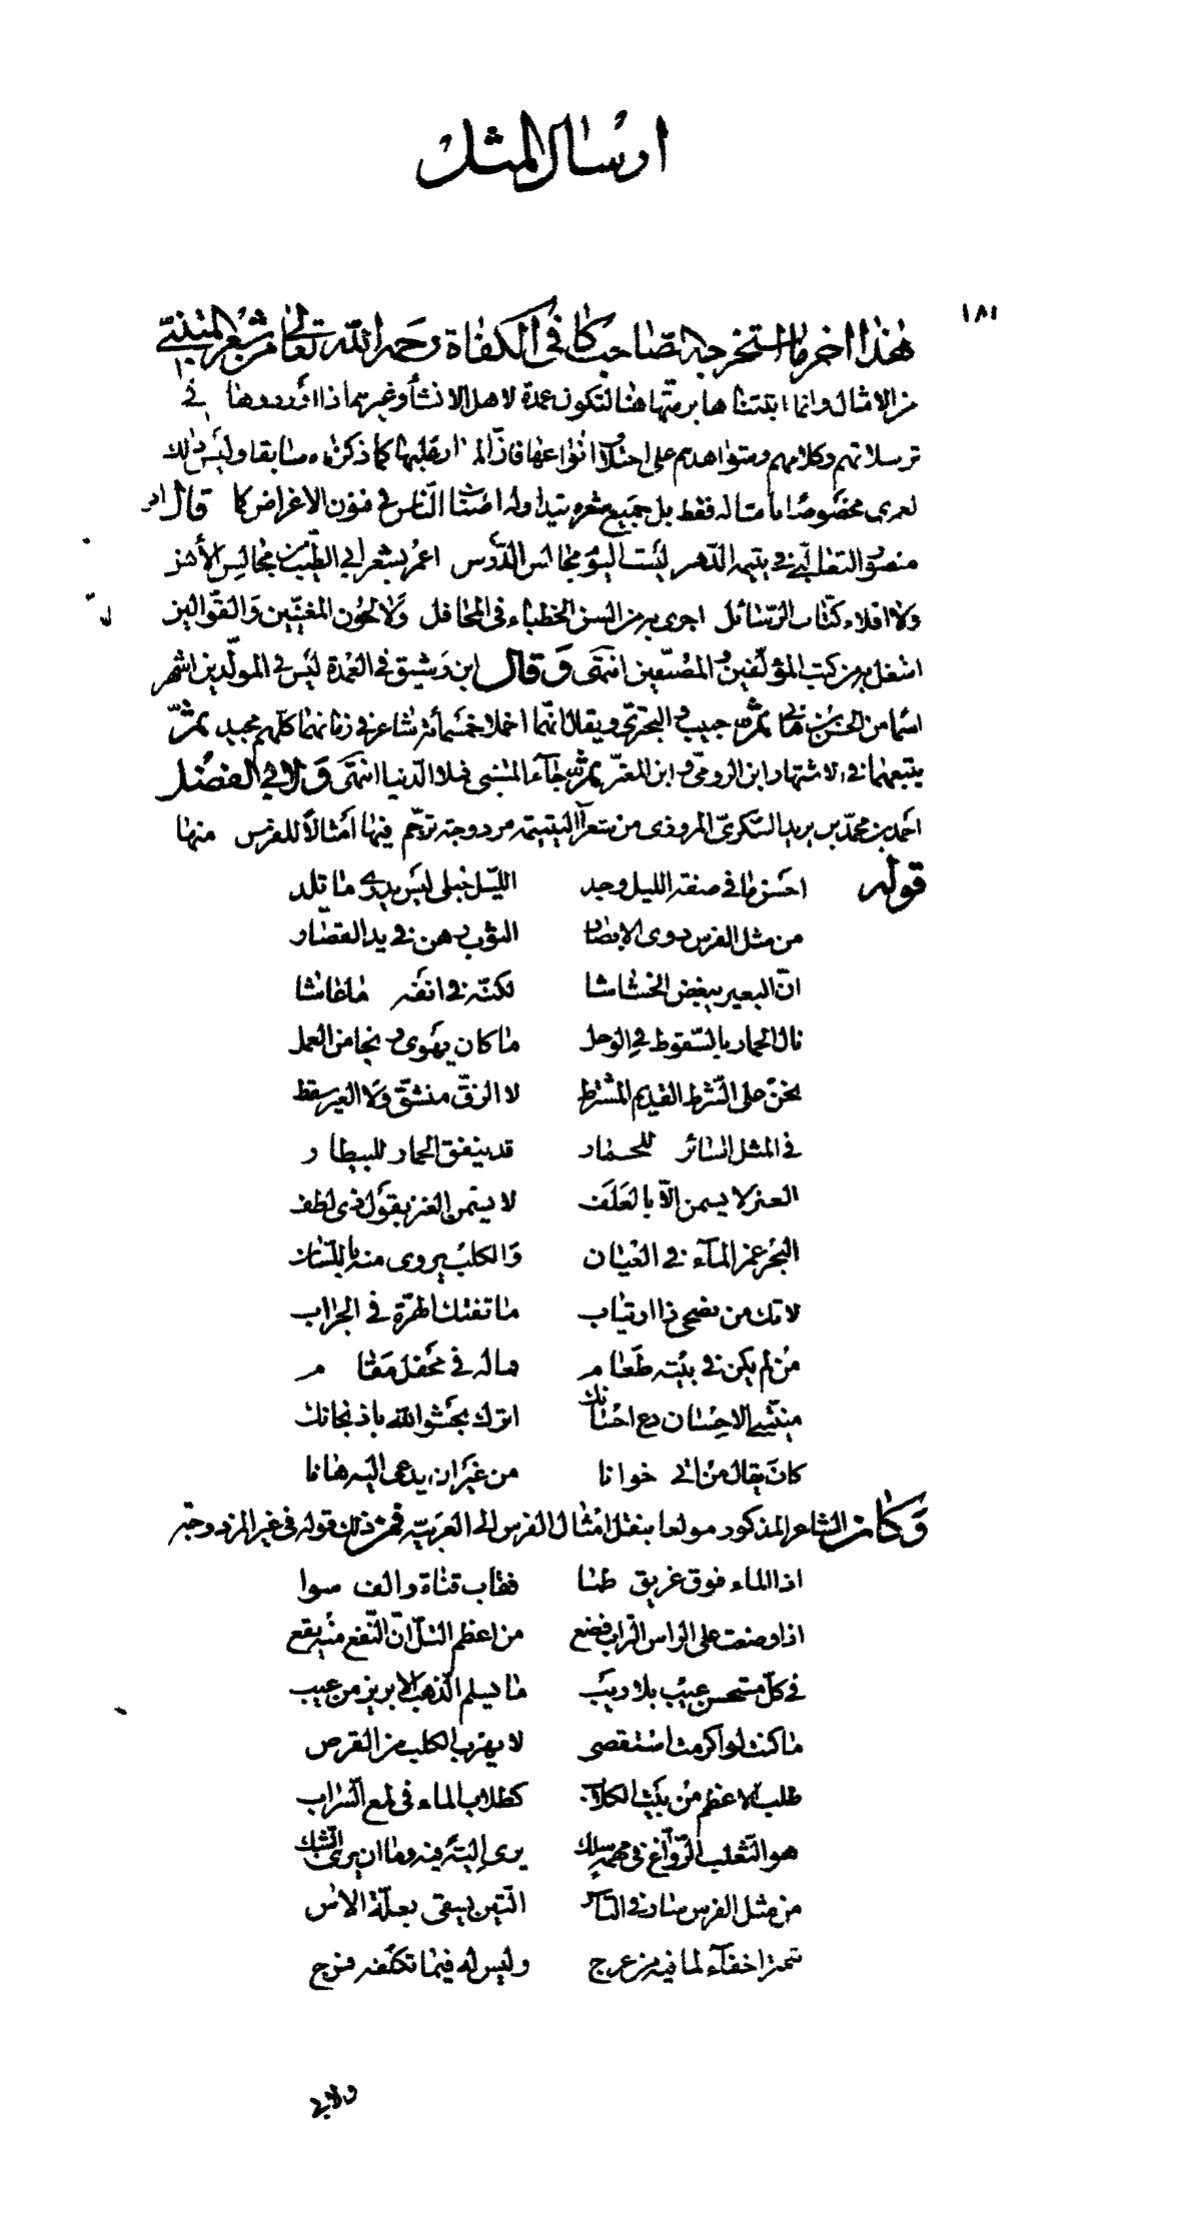 ارسال المثل
١٨١
هذا اخر ما استخرجه الصاحب كافى الكفاة رحمه الله تعالى من شعر المتنبي
من الامثال وانما اثبتناها برمتها هنا لتكون عمدة لاهل الانشاء وغيرهم اذا اوردوها في
ترسلاتهم وكلامهم وشواهدهم على اختلاف انواعها كما ذكرناه سابقا وليس ذلك
لعمرى مخصوصا بامثاله فقط بل جميع شعره يتداوله الناس في فنون الاغراض كما قال ابو
منصور الثعالبي في يتيمة الدهر ليست اليوم مجالس الدرس اعمر بشعر ابي الطيب من مجالس الأنس
ولا اقلام كتاب الرسائل اجرى به من السن الخطباء في المحافل ولا لحون المغنين والقوالين
اشغل به من كتب المؤلفين والمصنفين انتهى وقال ابن رشيق في العمدة ليس في المولدين اشهر
اسما من الحسن بن هاني ثمّ حبيب و البحترى ويقال انهما اخملا خمسمائة شاعر في زمانهما كلهم مجيد ثمّ
يتبعهما في الاشتهار ابن الرومى و ابن المعتز ثمّ جآء المتنبى فملا الدنيا انتهى و لابي الفضل
احمد بن محمد بن يزيد السكرى المروزى من شعرآء اليتيمة مزدوجة ترجم فيها أمثالاً للفرس منها
قوله احسن ما في صفة الليل وجد الليل حبلى ليس يدرى ما تلد
من مثل الفرس ذوى الابصار الثوب رهن في يد القصّار
انّ البعير يبغض الخشاشا لكنّه في انفه ما عاشا
نال الحمار بالسّقوط في الوحل ما كان يهوى و نجا من العمل
نحن على الشرط القديم المشترط لا الزقّ منشقّ ولا العير سقط
في المثل السائر للحمار قد ينفق الحمار للبيطار
العنز لا يسمن الّا بالعلف لا يسمن العنز بقول ذى لطف
البحر غمر المآء في العيان والكلب يروى منه باللسان
لا تك من نصحى ذا ارتياب ما تفتك الهرّة في الجراب
من لم يكن في بيته طعام ماله في محفل مقام
منيتني الاحسان دع احسانك اترك بحشو الله باذنجانك
كان يقال من اتى خوانا من غير ان يدعى اليه هانا
وكان الشاعر المذكور مولعا بنقل امثال الفرس الى العربية فمن ذلك قوله في غير المزدوجة
اذا الماء فوق غريق طما فقاب قناة والف سوا
اذا وضعت على الراس التراب فضع من اعظم التلّ انّ النّفع منه يقع
في كلّ مستحسن عيب بلا ريب ما يسلم الذهب الابريز من عيب
ما كنت لو اكرمت استقصى لا يهرب الكلب من القرص
طلب الاعظم من بيت الكلاب كطلاب الماء في لمع السّراب
هو الثعلب الروّاغ في مهمه سلك يرى إليته فيه وما ان يرى الشبك
من مثل الفرس سار في الناس التين يسقى بعلّة الآس
تبختر اخفآء لما فيه من عرج وليس له فيما تكلّفه فرج
ولابي